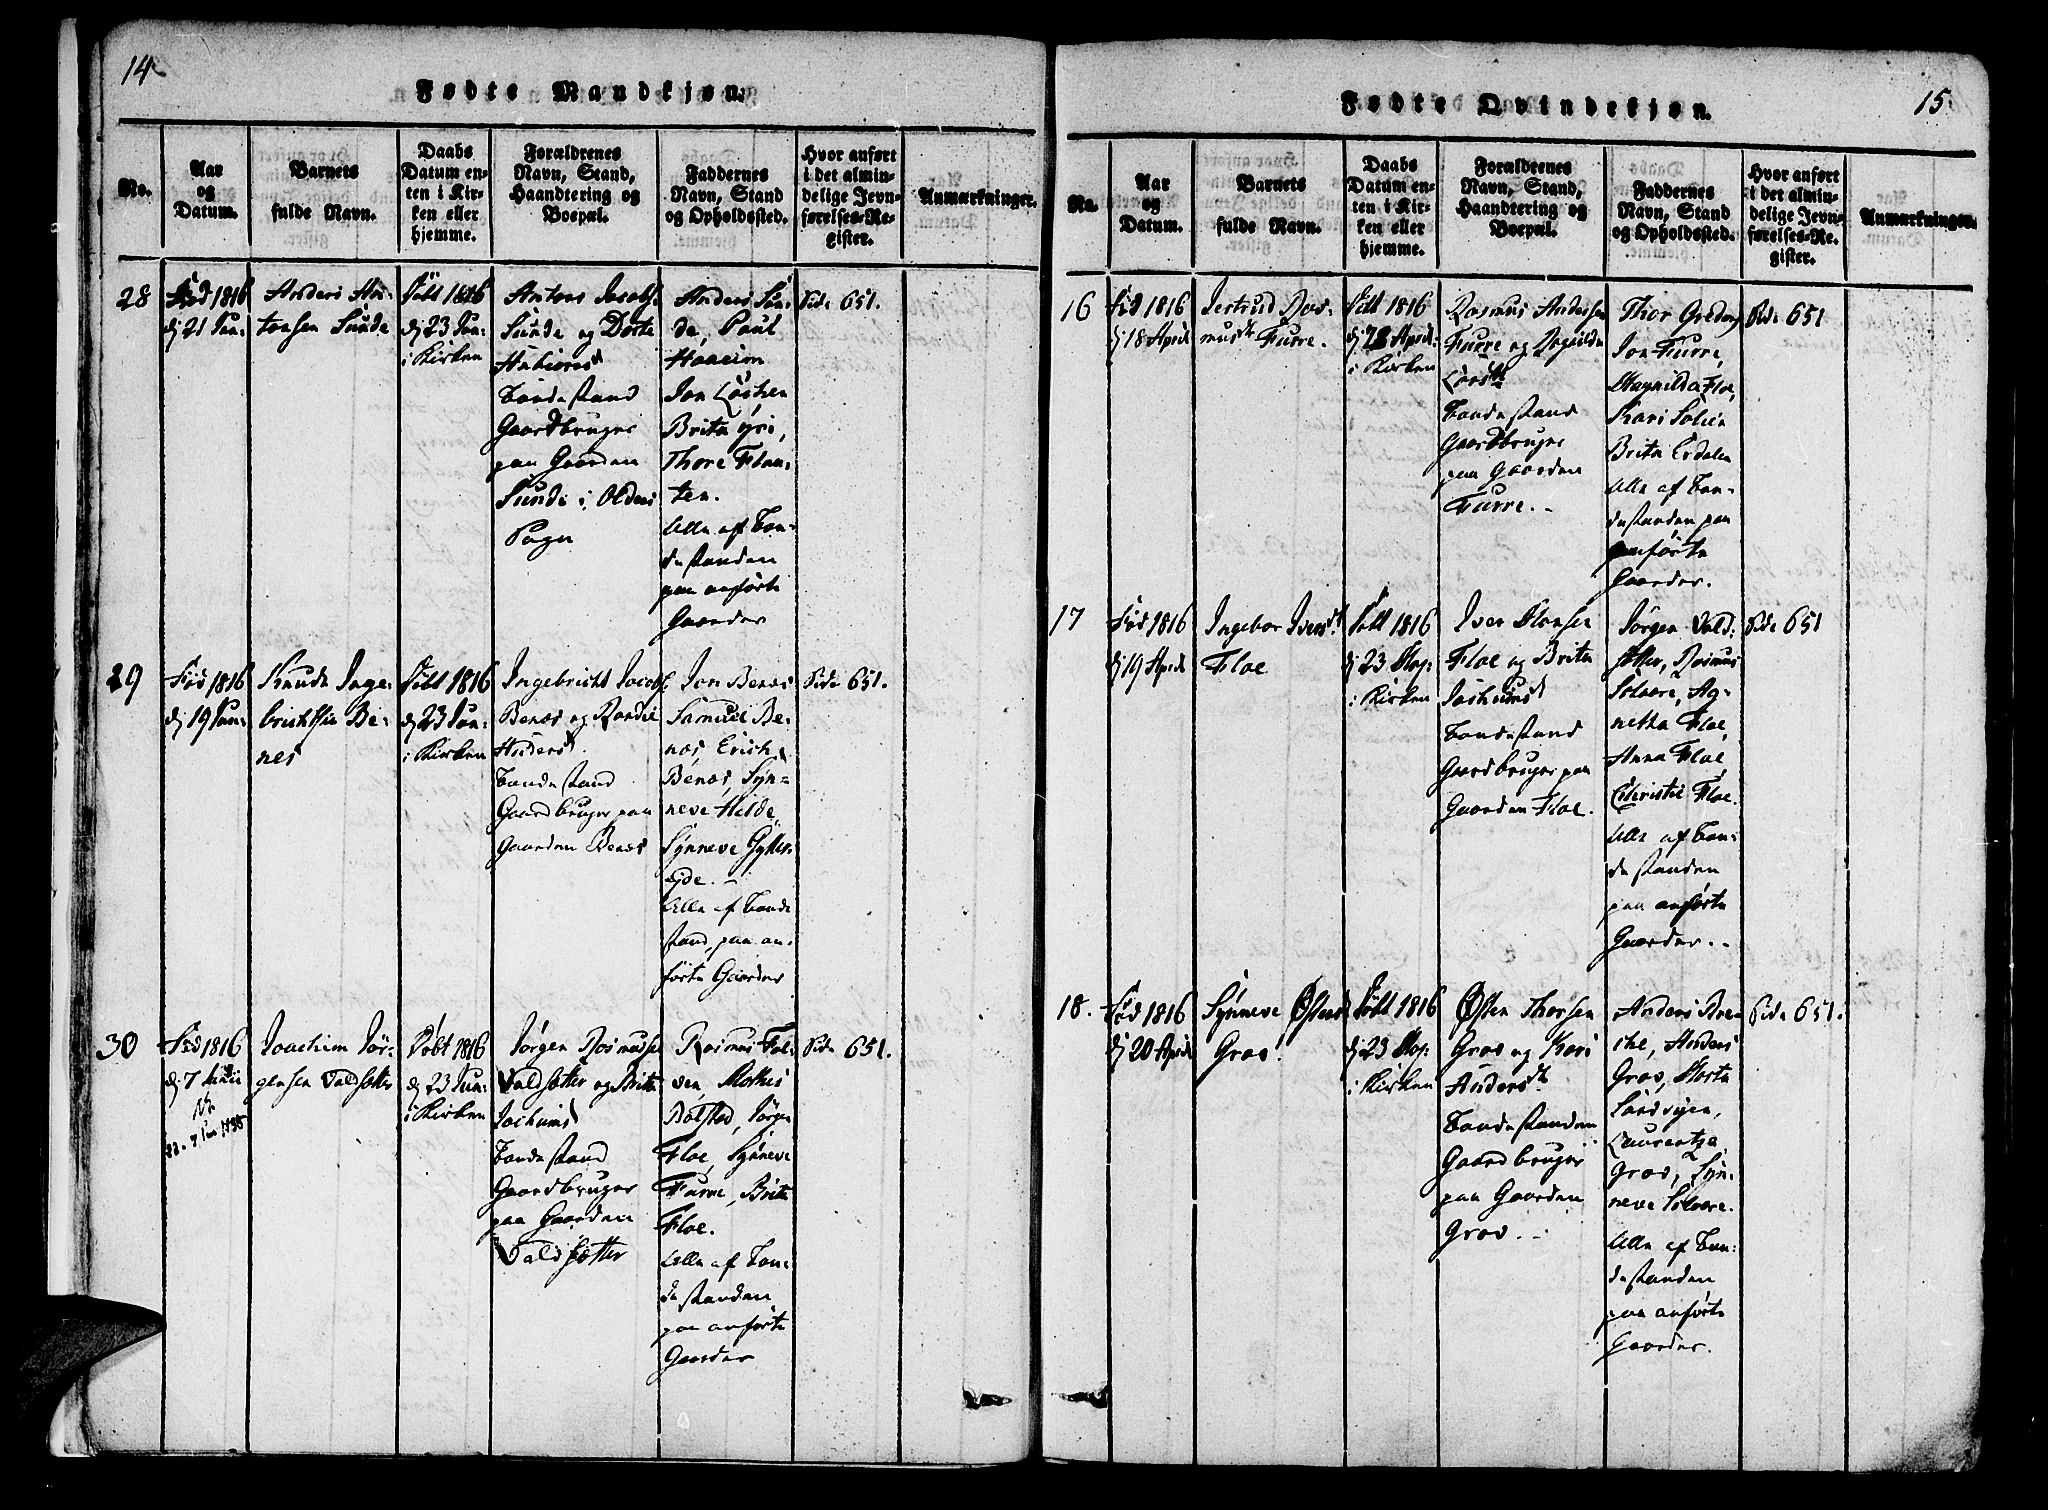 14
Fødte Mandkjøn.
No.
Aar
og
Datum.
Barnets
fulde Navn.
Daabs
Datum en-
ten i Kir-
ken eller
hjemme.
Forældrenes
Navn, Stand,
Haandtering og
Boepæl.
Faddernes
Navn, Stand
og Opholdssted.
Hvor anført
i det almin-
delige Jevn-
førelses-Re-
gister.
Anmærkninger.
28
Fød 1816
d 21 Jun:
Anders
tonsen Sunde
Døbt 1816
d 23 Jun:
i Kirken
Antoni Jacobs
Sunde og Dorte
Bondestand
Gaardbruger
paa Gaarden
Sunde i Olden
Sogn
Anders Sun-
de, Paul
Haaeim
Jon Løken
Brita Øri,
Thore Flaa-
ten.
Alle af Bon-
destanden
paa anførte
Gaarder
Side 651.
29
Fød 1816
d 19 Jun:
Knud Inge-
brichtsen Be-
nes
Døbt 1816
d 23 Jun:
i Kirken
Ingebricht Jacobs
Benæs og Randie
Andersd
Bondestand
Gaardbruger paa
Gaarden Benæs
Jon Benæs
Samuel Be-
næs, Erich
Benæs, Syn-
neve Helde,
Synneve Gytter-
Eyde. –
Alle af Bonde
stand, paa an-
førte Gaarder
Side 651.
30
Fød 1816
d 7 Junii
Joachim Jør-
gensen Valdsætter
Døbt 1816
d 23 Jun:
i Kirken
Jørgen Rasmuss
Valdsætter og Brite
Jochumsd
Bondestand
Gaardbruger
paa Gaarden
Valdsætter
Rasmus Fol-
ven Mathis
Bølstad, Jørgen
Floe, Synneve
Furre, Brite
Floe.
Alle af Bon-
destanden
paa anførte
Gaarder
Side 651.
15
Fødte Qvindekjøn.
No.
Aar
og
Datum.
Barnets
fulde Navn.
Daabs
Datum en-
ten i Kir-
ken eller
hjemme.
Forældrenes
Navn, Stand,
Haandtering og
Boepæl.
Faddernes
Navn, Stand
og Opholdssted.
Hvor anført
i det almin-
delige Jevn-
førelses-Re-
gister.
Anmærkninger.
16
Fød 1816
d 18 April
Jertrud Ras-
musdt Furre.
Døbt 1816
d 28 April:
i Kirken
Rasmus Andersen
Furre og Ragnilde
Larsdt
Bondestand
Gaardbruger
paa Gaarden
Furre. –
Thor
Jon Furre,
Magnilda Floe,
Kari Solvie
Brita Erdalen
Alle af Bon-
destanden paa
anførte
Gaarder.
Side 651
17
Fød 1816
d 19 April
Ingebor Iversdt
Floe
Døbt 1816
d 23 Maj:
i Kirken
Iver Hansen
Floe og Brita
Jochumsd
Bondestand
Gaardbruger paa
Gaarden Floe.
Jørgen Vald-
sætter, Rasmus
Solvore, Ag-
netha Floe,
Anna Floe,
Christie Floe.
Alle af Bon-
destanden
paa anførte
Gaarder. –
Side 651
18.
Fød 1816
d 20 April
Synneve Østensd
Grov.
Døbt 1816
d 23 Maj:
i Kirken
Østen Thorsen
Grov og Kari
Andersdt
Bondestanden
Gaardbruger
paa Gaarden
Grov. –
Anders
Anders
Grov, Marta
Sandvigen,
Laurentza
Grov, Syn-
neve Solvore.
Alle af Bon-
destanden
paa anførte
Gaarder.
Side 651.